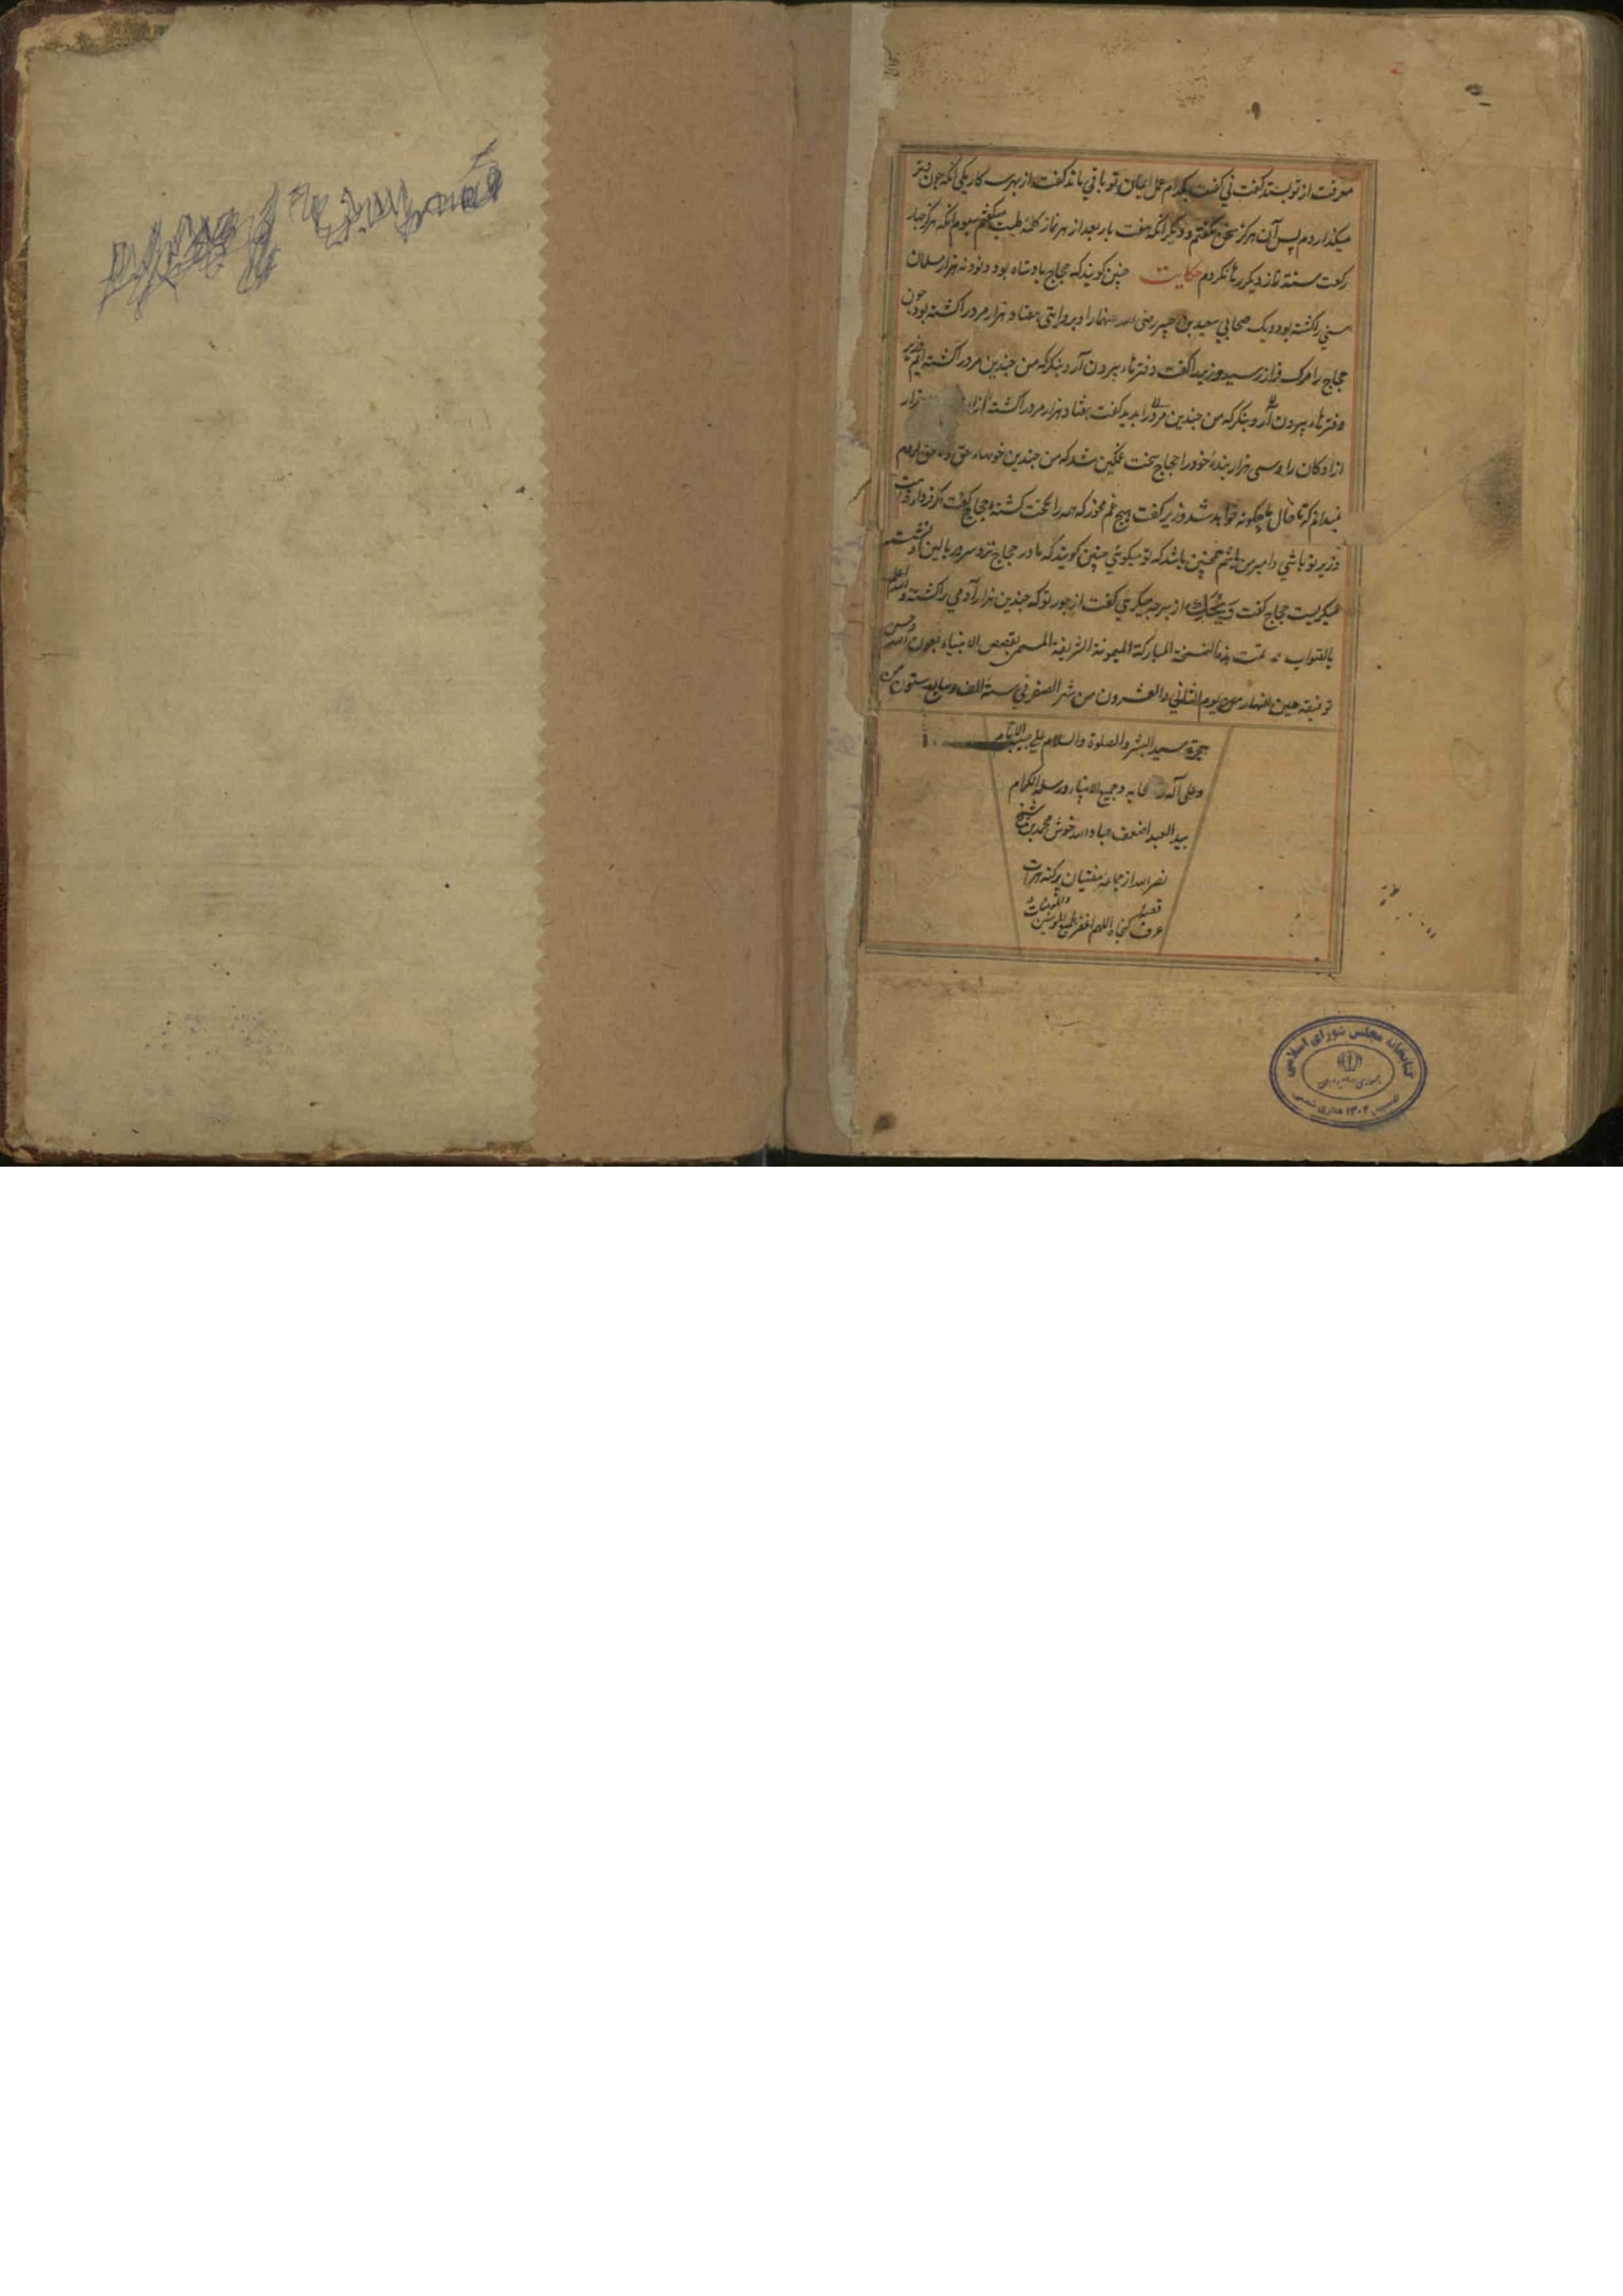 معرفت از تو بستد گفت ني گفت بكدام عمل ايمان تو باقي ماند گفت از بهر سه كار يكي آنكه چون وتر
ميكذاردم پس آن هركز سخن نكفتم و ديكر آنكه هفت بار بعد از هر نماز كلمهٔ طيب ميكفتم سيوم آنكه هركز چهار
ركعت سنة نماز ديكر رها نكردم حكايت چنين كويند كه حجاج پادشاه بود و نود نه هزار مسلمان
سني را كشته بود و يك صحابي سعيد بن جبير رضي الله عنهما را و بروايتي هفتاد هزار مرد را كشته بود چون
حجاج را مرك فراز رسيد وزير را گفت دفترها بيرون آر و بنكر كه من چندين مرد را كشته ايم وزير
دفترها بيرون آر و بنكر كه من چندين مرد را بديد كفت هفتاد هزار مرد را كشته از هزار
ازادكان را و سي هزار بندهٔ خود را حجاج سخت غمكين شد كه من چندين خونها حق و نا حق كردم
نميدانم كه تا حال ما چكونه خواهد شد وزير كفت هيچ غم مخور كه همه را بحق كشته حجاج كفت اكر فرداء قيامت
وزير تو باشي و امير من باشم همچنين باشد كه تو ميكوئي چنين كويند كه مادر حجاج نزد سرور بالين او نشسته
ميكريست حجاج كفت ويحك از بهر چه ميكرئي كفت از جور تو كه چندين هزار آدمي را كشته والله اعلم
بالصواب تمت هذه النسخة المباركة الميمونة الشريفة المسمى بقصص الانبياء بعون الله وحسن
توفيقه حين النهار يوم الثاني والعشرون من شهر الصفر في سنة الف وسابع ستون من
هجرة سيد البشر والصلوة والسلام على حبيب الانام
وعلى آله وجميع الانبياء ورسله الكرام
بيد العبد اضعف عباد الله خوش محمد بن شيخ
نصر الله از جماعهٔ مفتيان پركنه هرات
قصبه
عرف كنجاه اللهم اغفر لجميع المؤمنين والمؤمنات
كتابخانه مجلس شوراى اسلامى
جمهورى اسلامى ايران
تاسيس ۱۳۰۲ هجرى شمسى